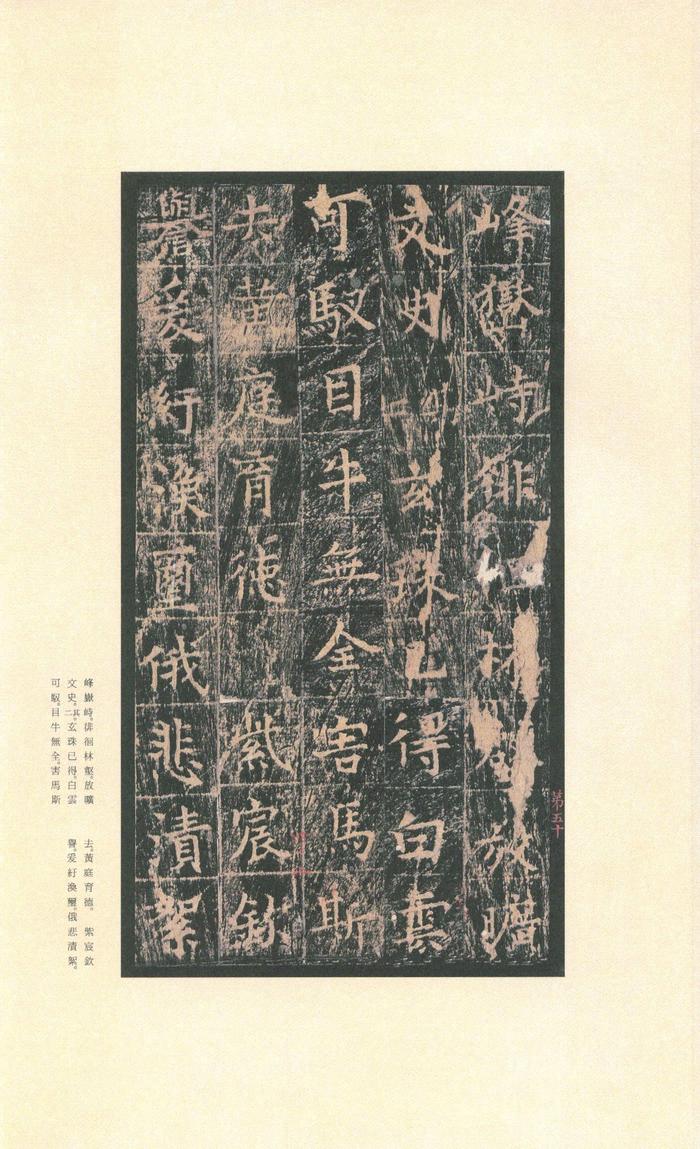 峰嶽峙徘林壑放曠
文史二玄珠已得白雲
可馭目牛無全害馬斯
去黃庭育德 紫宸欽
譽爰紆渙璽俄悲漬絮
第五十
峰嶽峙。徘徊林壑。放曠
文史。其二。玄珠已得。白雲
可馭。目牛無全。害馬斯
去。黃庭育德。 紫宸欽
譽。爰紆渙璽。俄悲漬絮。